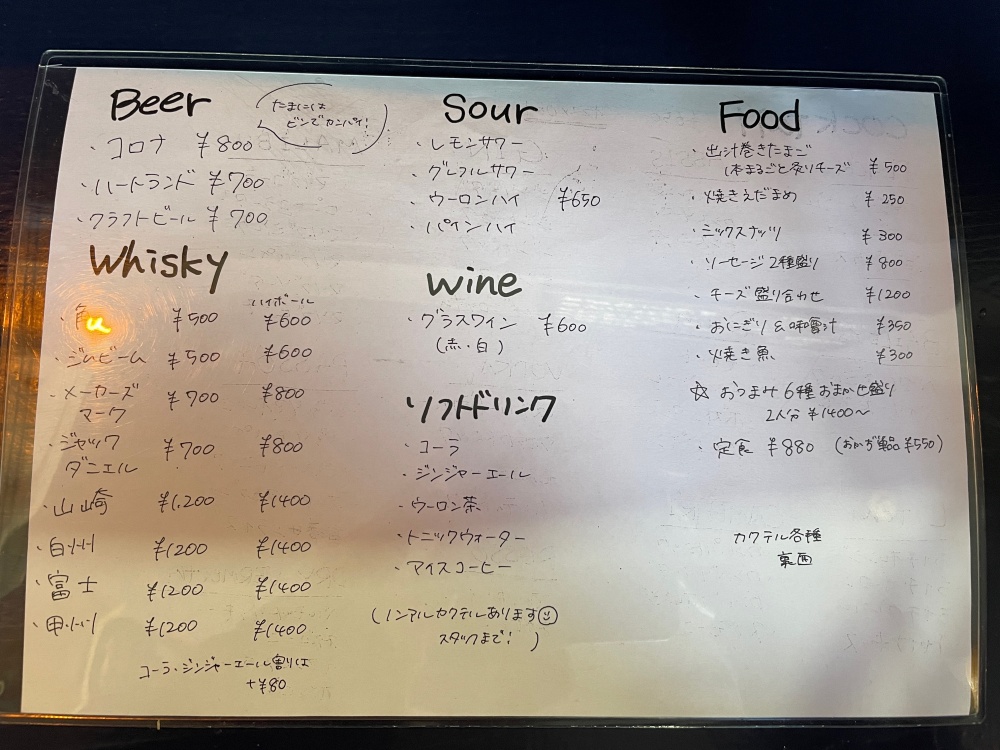 Beer
たまには
ビンでカンパイ!
・コロナ ¥800
・ハートランド ¥700
・クラフトビール ¥700
Whisky
ハイボール
・角 ¥500 ¥600
・ジムビーム ¥500 ¥600
・メーカーズ
マーク ¥700 ¥800
・ジャック
ダニエル ¥700 ¥800
・山崎 ¥1,200 ¥1400
・白州 ¥1200 ¥1400
・富士 ¥1200 ¥1400
・甲州 ¥1200 ¥1400
コーラ・ジンジャーエール割りは
+¥80
Sour
・レモンサワー
・グレフルサワー
・ウーロンハイ ¥650
・パインハイ
wine
・グラスワイン ¥600
(赤・白)
ソフトドリンク
・コーラ
・ジンジャーエール
・ウーロン茶
・トニックウォーター
・アイスコーヒー
(ノンアルカクテルあります☺
スタッフまで!)
Food
・出汁巻きたまご
1本まるごと炙りチーズ ¥500
・焼きえだまめ ¥250
・ミックスナッツ ¥300
・ソーセージ2種盛り ¥800
・チーズ盛り合わせ ¥1200
・おにぎり&味噌汁 ¥350
・焼き魚 ¥300
☆ おつまみ6種おまかせ盛り
2人分 ¥1400〜
・定食 ¥880 (おかず単品¥550)
カクテル各種
裏面